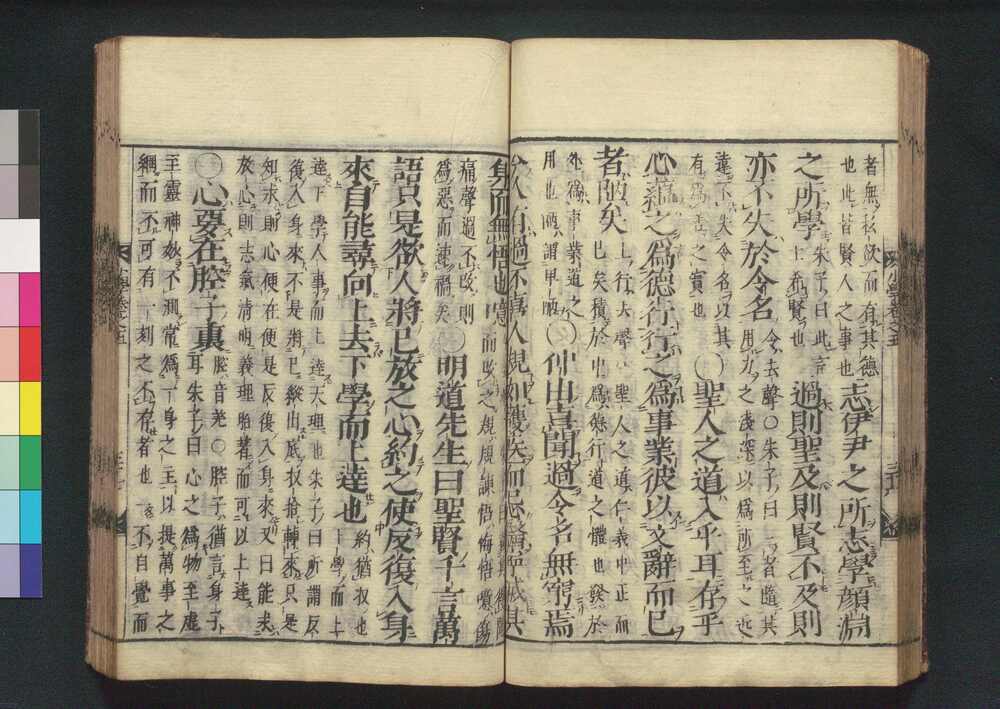 者無私欲而有其德
也此皆賢人之事也志伊尹之所志學顏淵
之所學朱子曰此言
上希賢也過則聖及則賢不及則
亦不失於令名令去聲〇朱子曰三者隨其
用力之淺深以爲所至之近
遠不失令名以其
有爲善之實也〇聖人之道入乎耳存乎
心蘊之爲德行行之爲事業彼以文辭而已
者陋矣上行去聲〇聖人之道仁義中正而
已矣積於中爲德行道之體也發於
外爲事業道之
用也陋謂卑陋〇仲由喜聞過令名無窮焉
今人有過不喜人規如護疾而忌醫寧滅其
身而無悟也噫
痛聲過不改則
爲惡而速禍矣〇明道先生曰聖賢千言萬
語只是欲人將已放之心約之使反復入身
來自能尋向上去下學而上達也約猶收也
下學而上
達下學人事而上達天理也朱子曰所謂反
復入身來不是將已縱出底收拾轉來只是
知求則心便在便是反復入身來又曰能求
放心則志氣淸明義理昭著而可以上達
〇心要在腔子裏腔音羌〇腔子猶言身子
耳朱子曰心之爲物至虛
至靈神妙不測常爲一身之主以提萬事之
綱而不可有一刻之不存者也一不自覺而